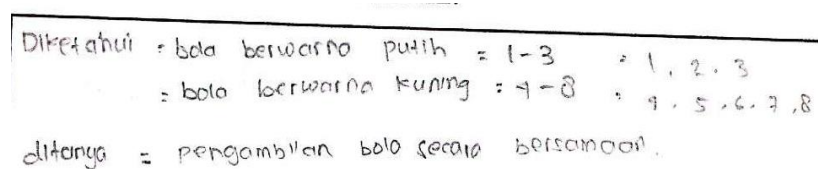 Diketahui = bola berwarna putih = 1-3 = 1, 2, 3
= bola berwarna kuning = 4-8 = 4, 5, 6, 7, 8
ditanya = pengambilan bola secara bersamaan.